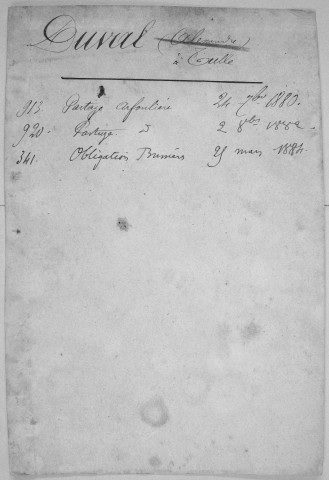 Duval (Alexandre)
à Tulle
913. Partage 24 7bre 1880.
920. Partage d 2 8bre 1882.
341. Obligation 25 mars 1884.